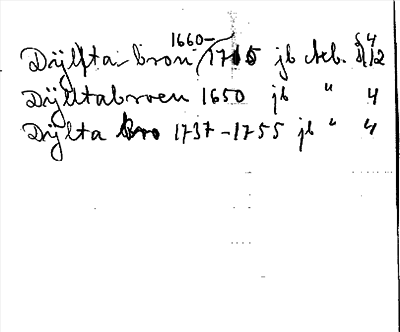 Dÿlfta bron 1660-1715 jb Neb. § 4 12
Dÿltabroen 1650 jb " 4
Dÿlta bro 1737-1755 jb " 4